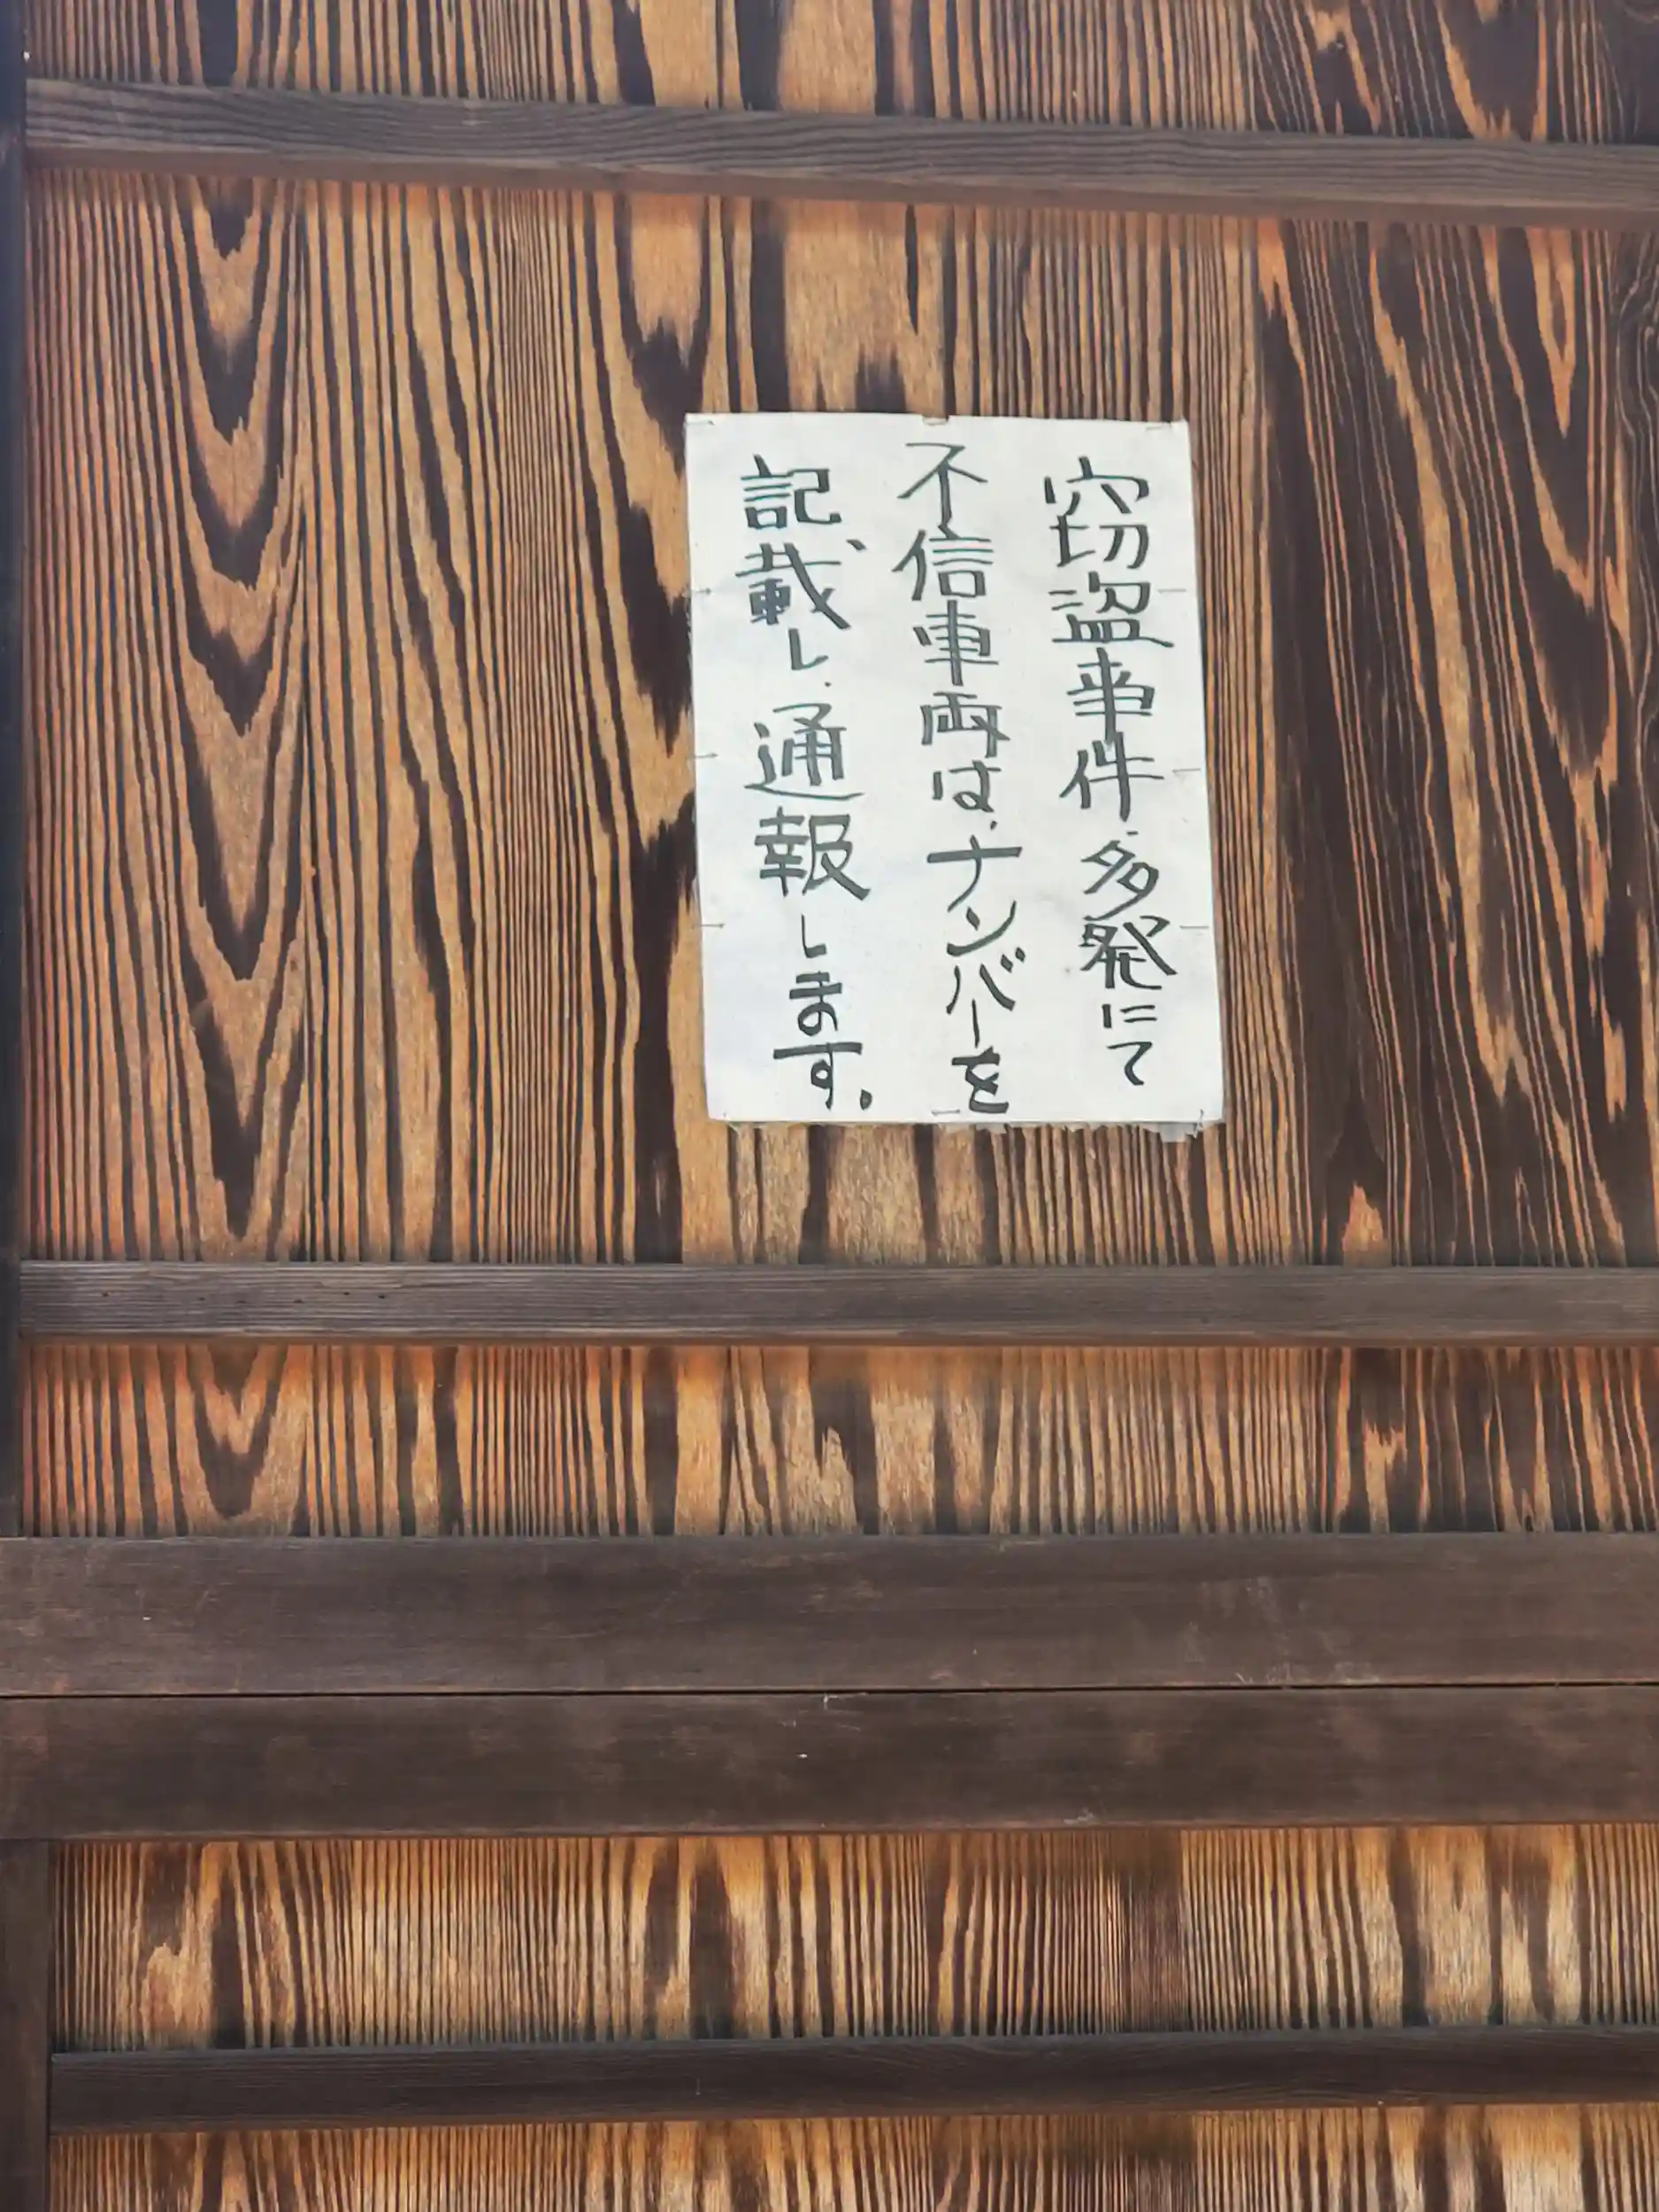 窃盗事件多発にて
不信車両は、ナンバーを
記載し通報します。